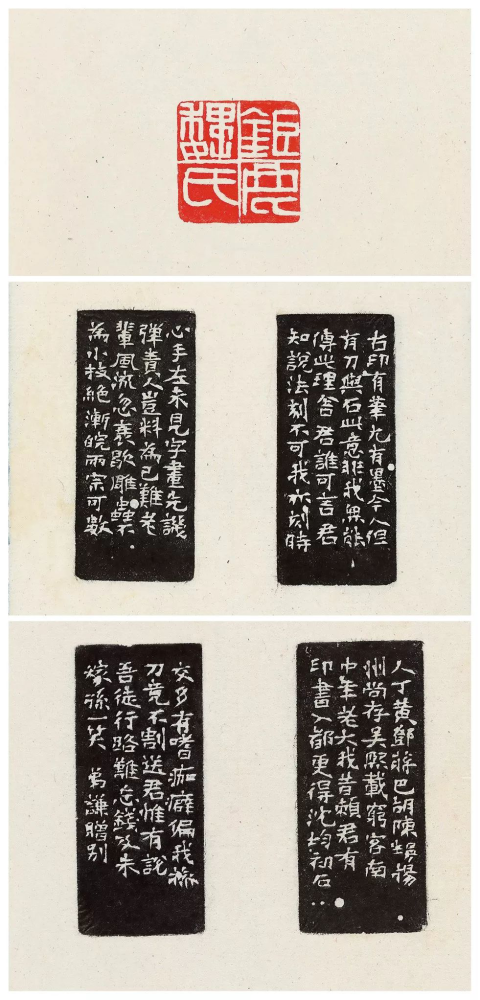 鉅鹿
魏氏
古印有筆尤有墨今人但
有刀與石此意非我無能
傳此理舍君誰可言君
知說法刻不可我亦刻時
心手左未見字畫先譏
彈責人豈料為己難老
輩風流忽衰歇雕蟲
為小技絕漸皖兩宗可數
人丁黃鄧蔣巴胡陳揚
州尚存吳熙載窮客南
中年老大我昔賴君有
印書入都更得沈均初石
交多有嗜痂癖偏我操
刀竟不割送君惟有說
吾徒行路難忘錢及朱
孫一笑 弟謙贈別